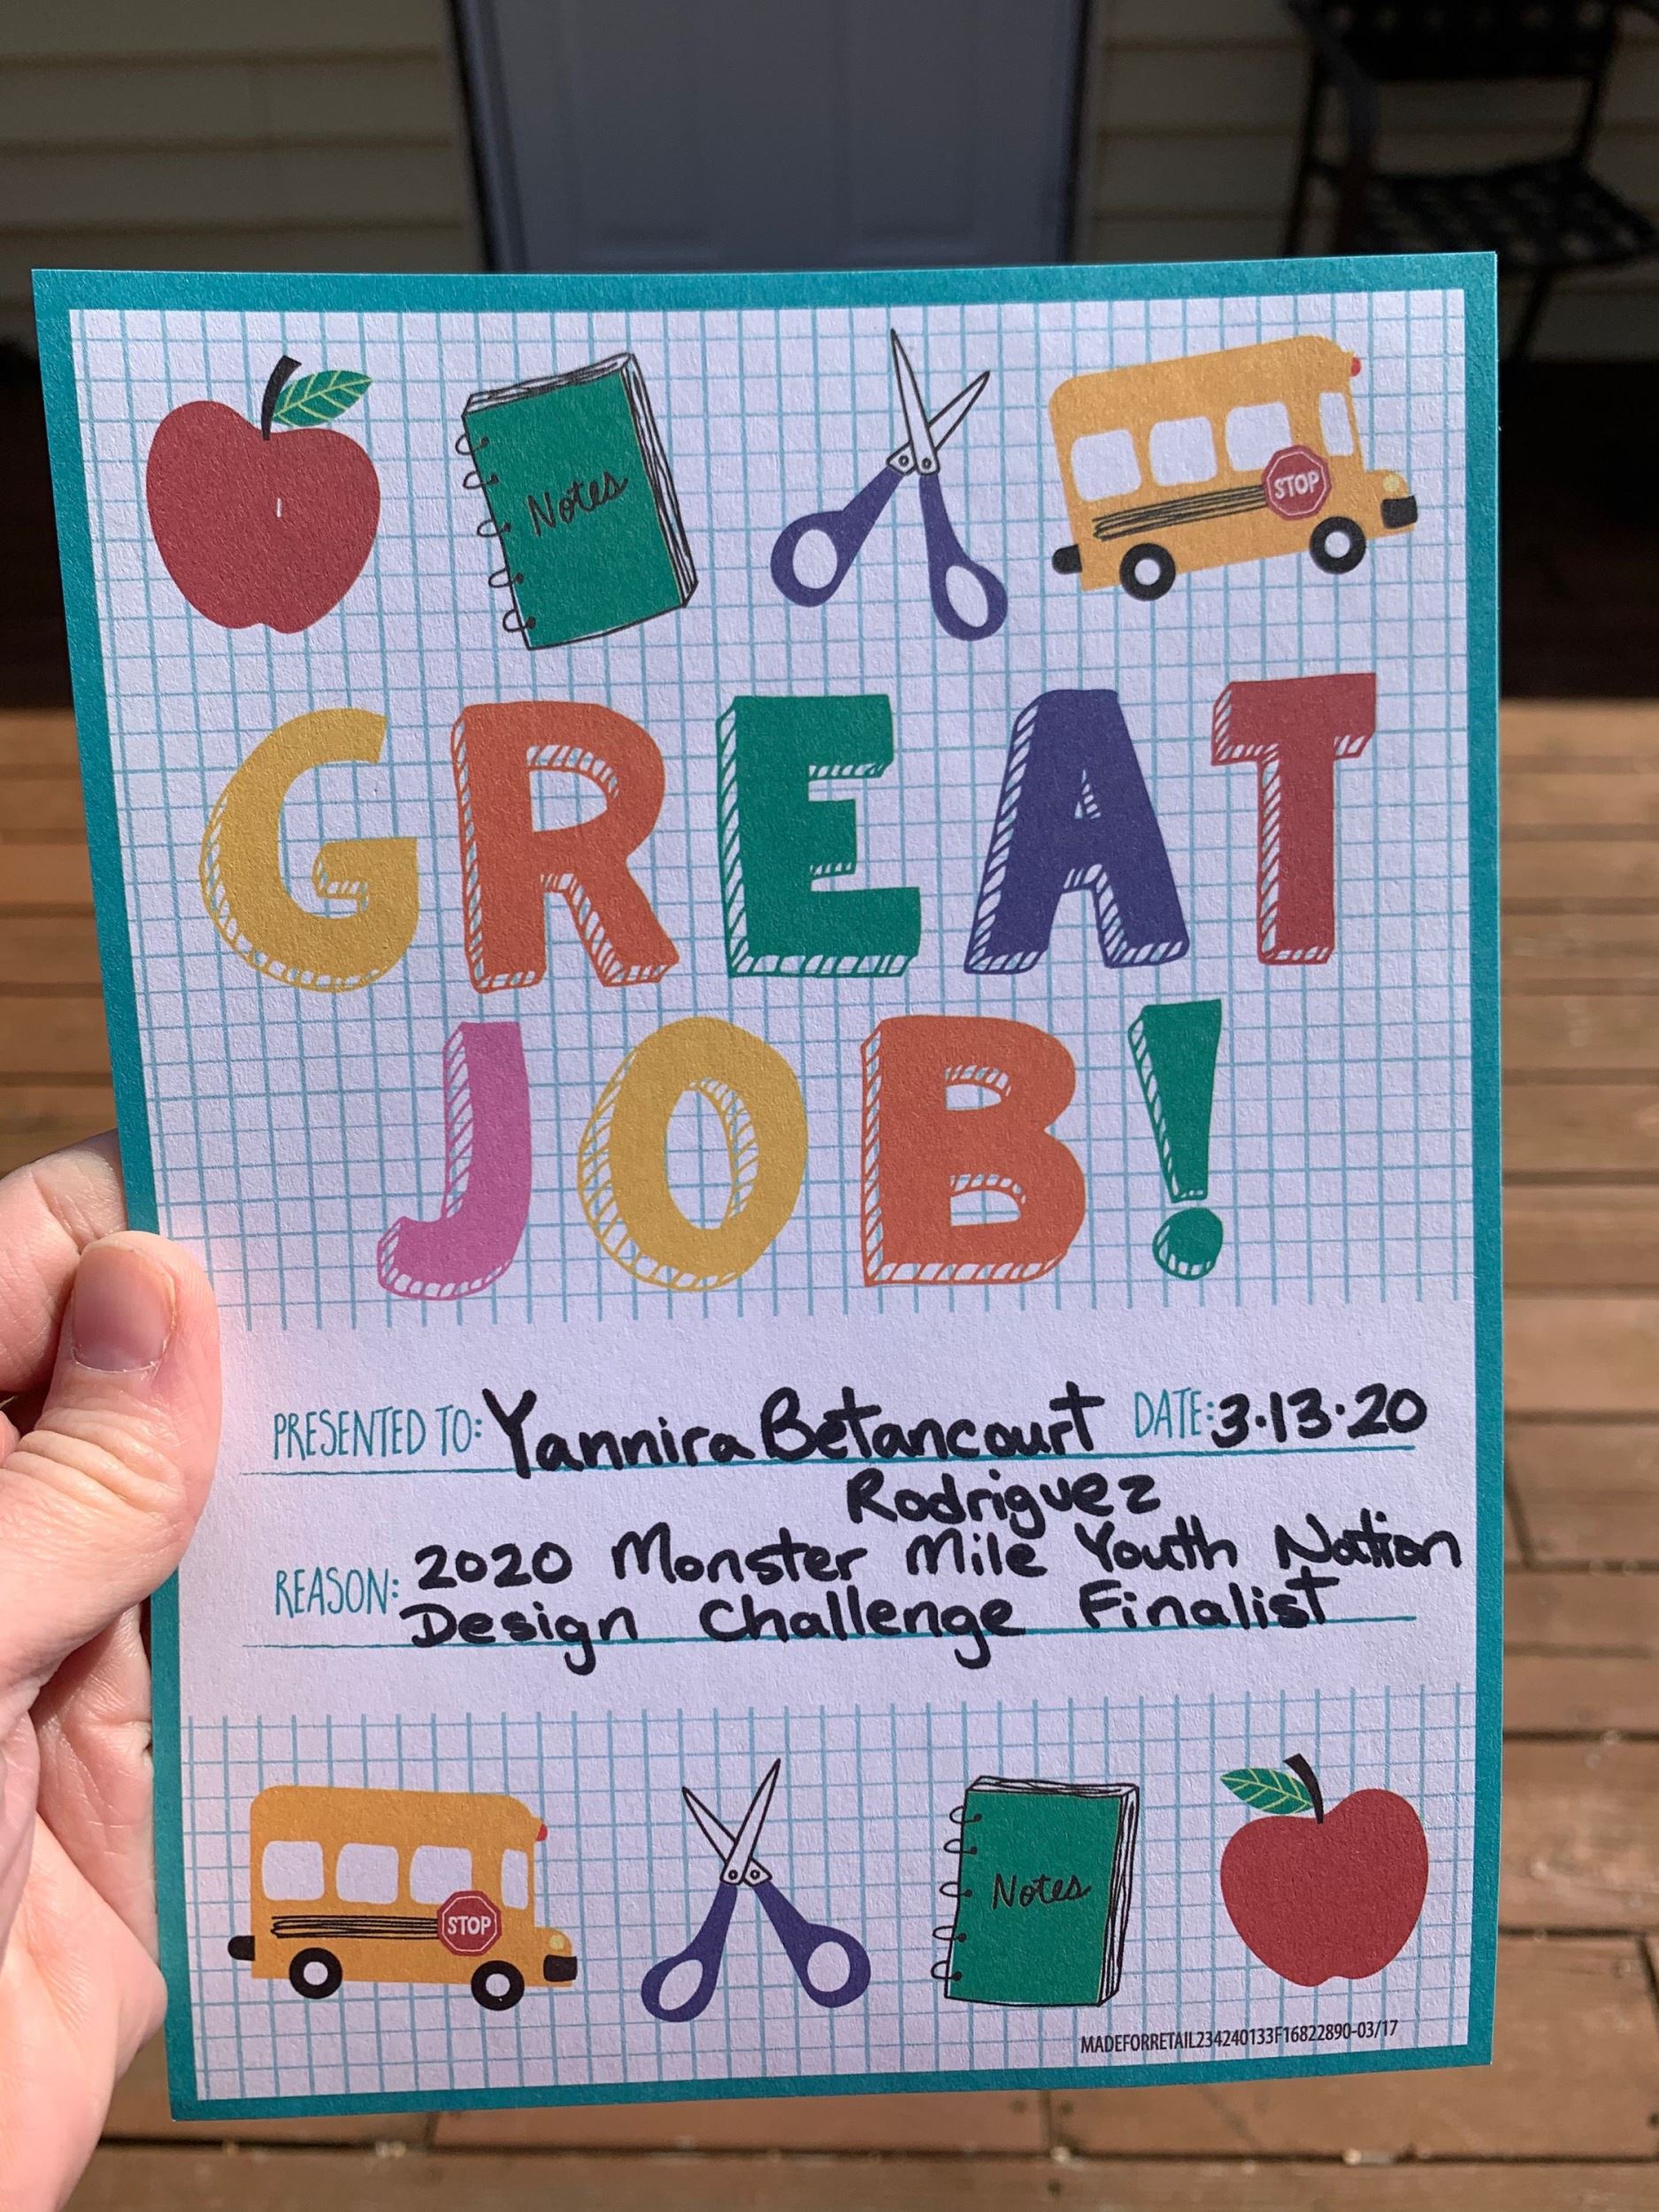 Notes
STOP
GREAT
JOB!
PRESENTED TO: Yannira Betancourt DATE: 3.13.20
Rodriguez
REASON: 2020 Monster Mile Youth Nation
Design Challenge Finalist
STOP
Notes
MADEFORRETAIL234240133F16822890-03/17